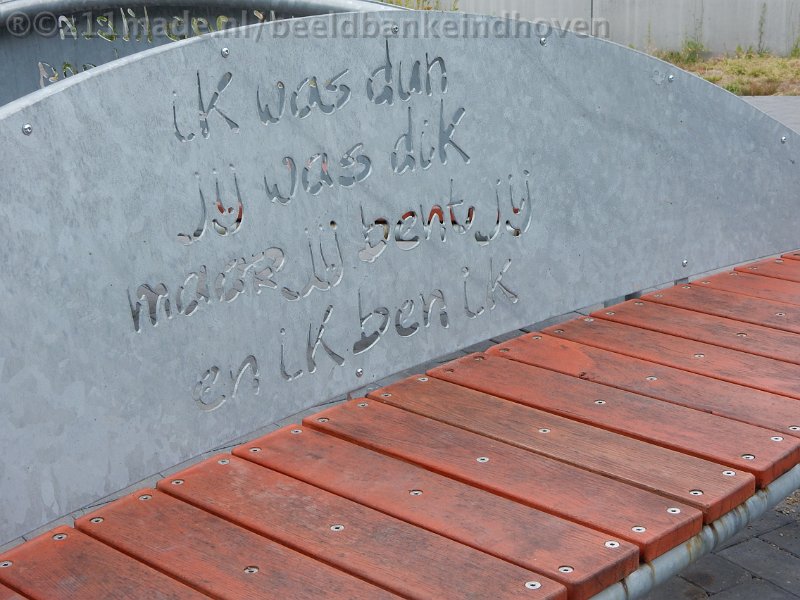 ®©A11made.nl/beeldbankeindhoven
ik was dun
jij was dik
maar jij bent jij
en ik ben ik